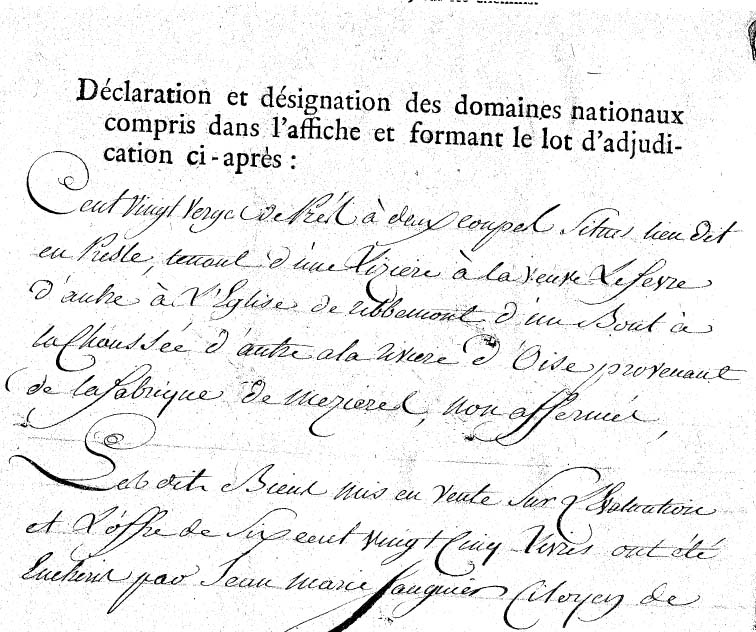 Déclaration et désignation des domaines nationaux
compris dans l'affiche et formant le lot d'adjudi-
cation ci-après :
Cent vingt verges de Prés à deux coupes situés lieu dit
en Presle, tenant d'une Liziere à la veuve Lefevre
D'autre à L'Eglise de Ribbemont d'un Bout à
la Chaussée d'autre a la riviere d'Oise provenant
de la fabrique de mezieres, non affermés,
Lesdits Biens mis en vente sur L'Evaluation
et L'offre de Six cent vingt Cinq Livres ont été
Encheris par Jean Marie Citoyen de